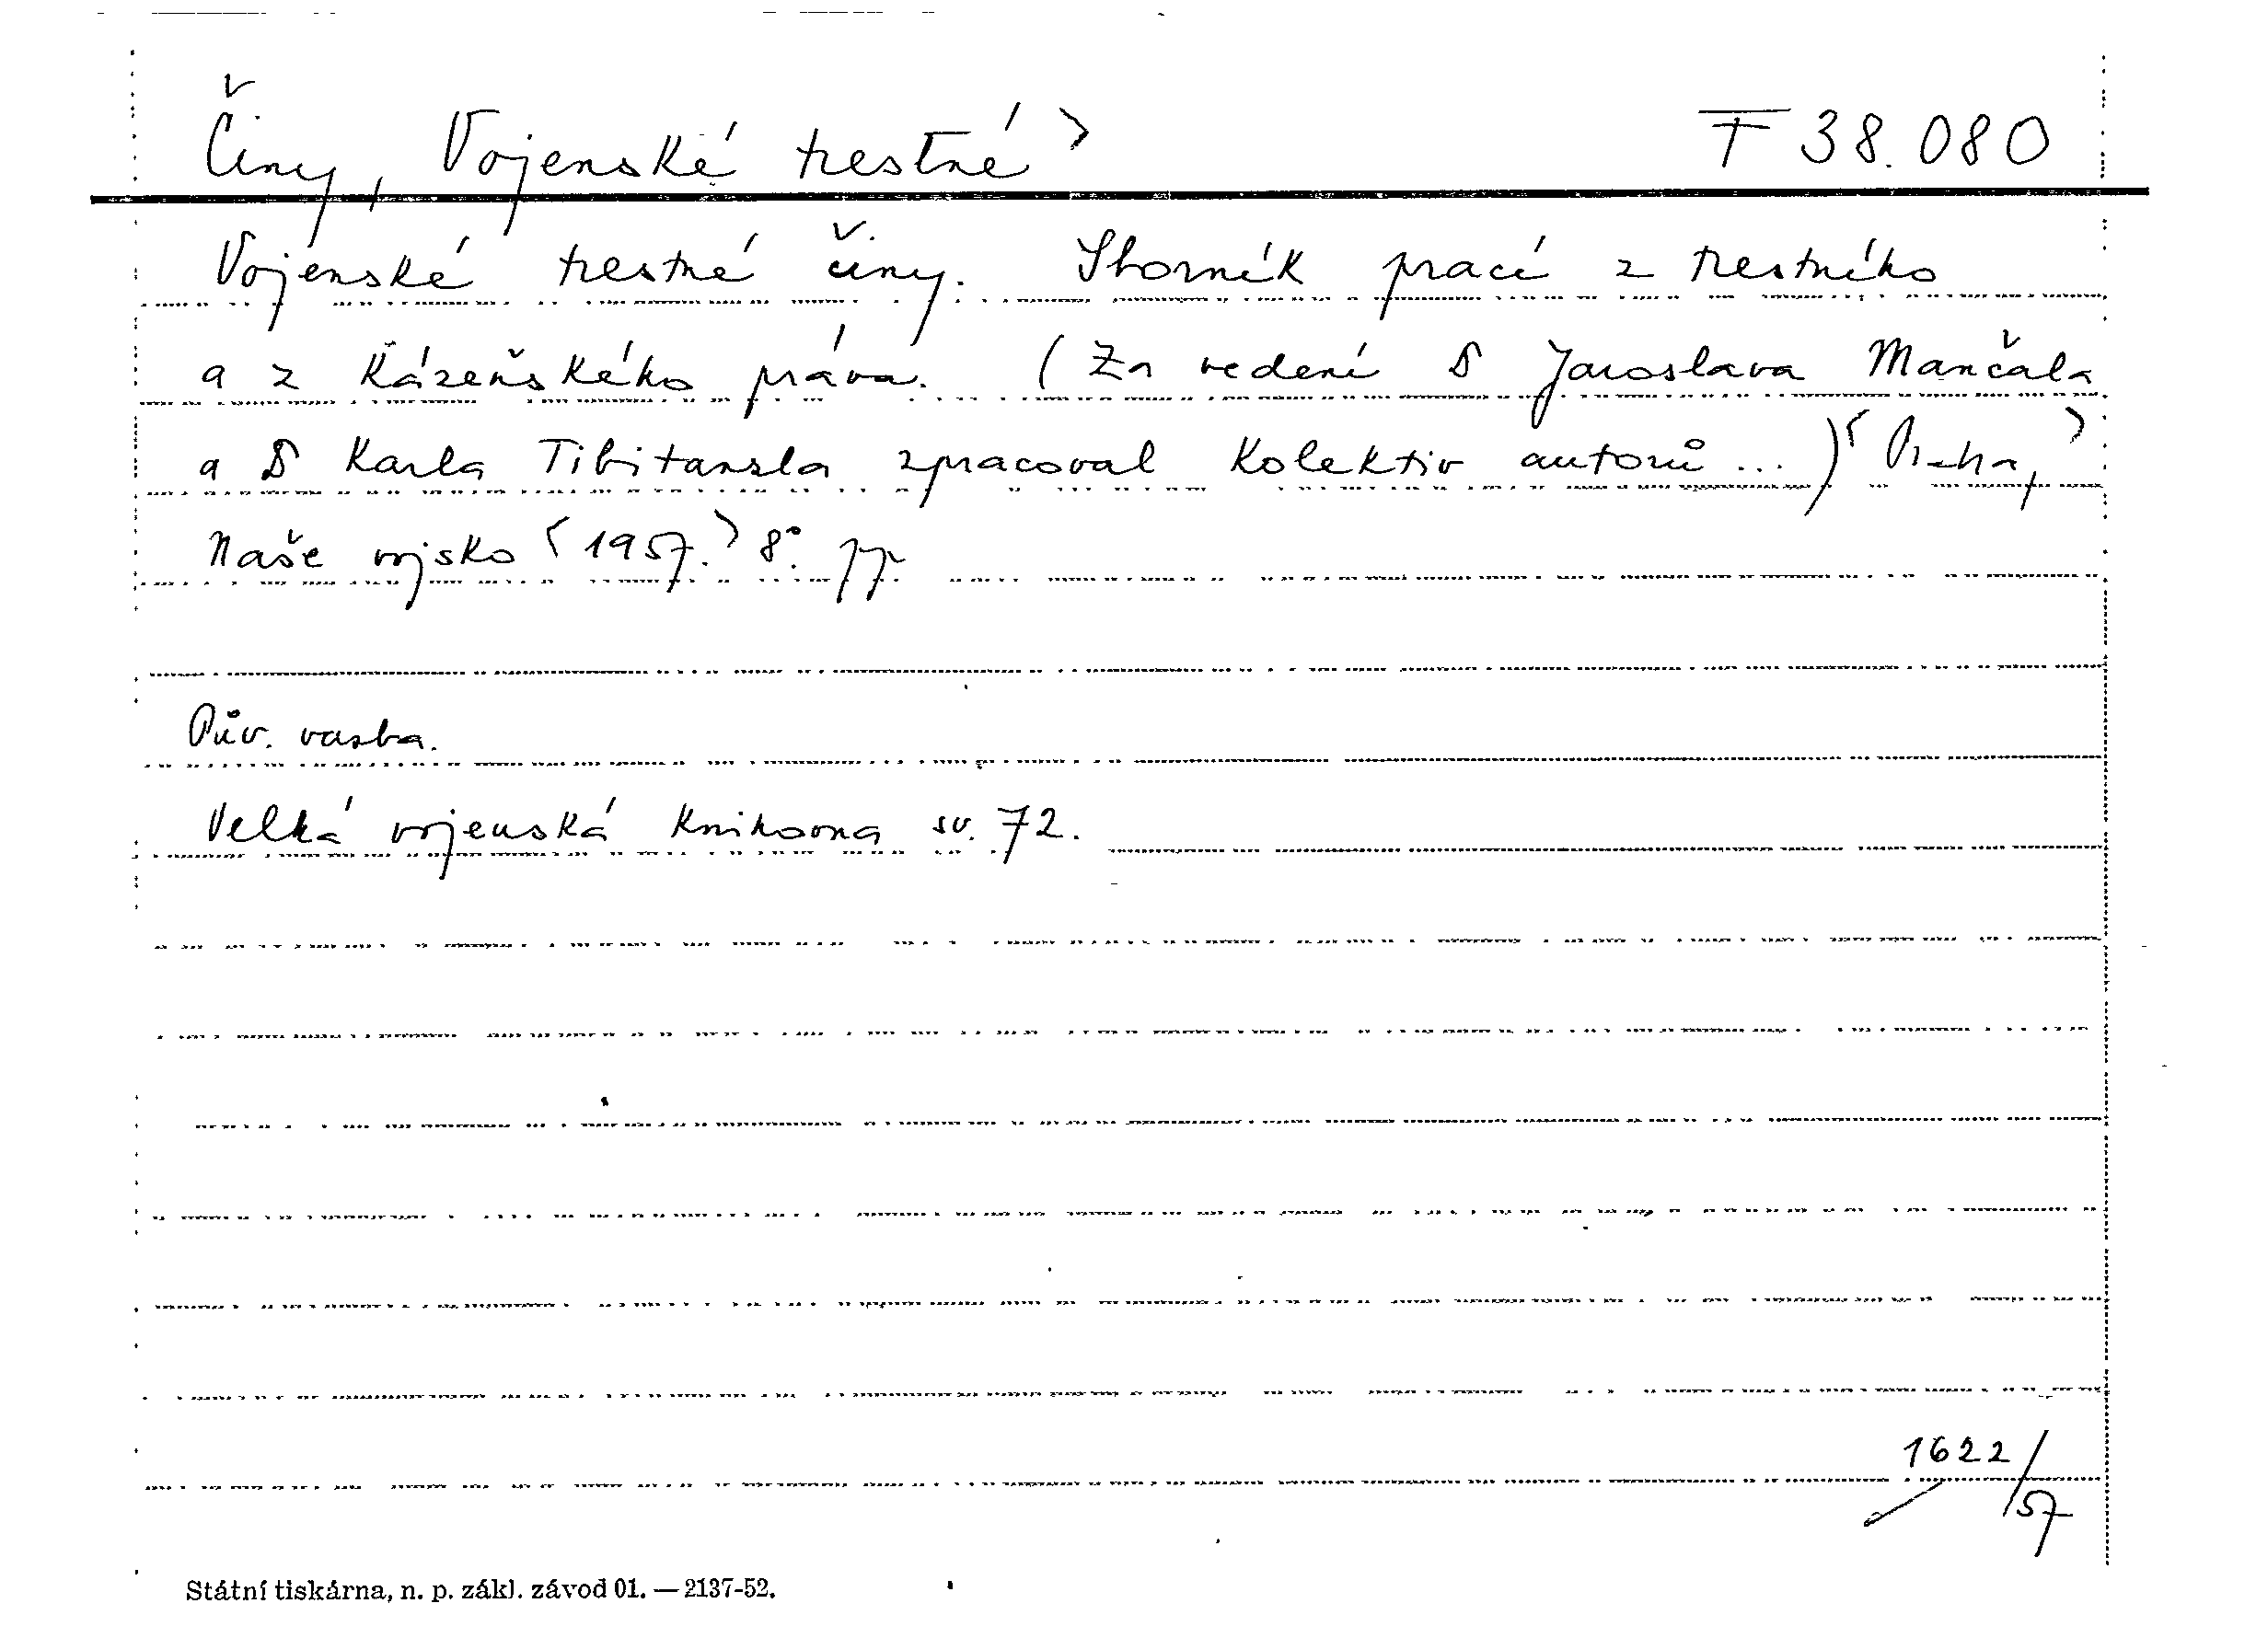 Činy, Vojenské trestné > T 38.080
Vojenské trestné činy. Sborník prací z trestního
a z kázeňského práva. (Za vedení D Jaroslava Mančala
a D Karla Tibitanzla zpracoval kolektiv autorů ...) < Praha, >
Naše vojsko < 1957. > 8°. pp.
Pův. vazba.
Velká vojenská knihovna sv. 72.
1622/57
Státní tiskárna, n. p. zákl. závod 01. — 2137-52.